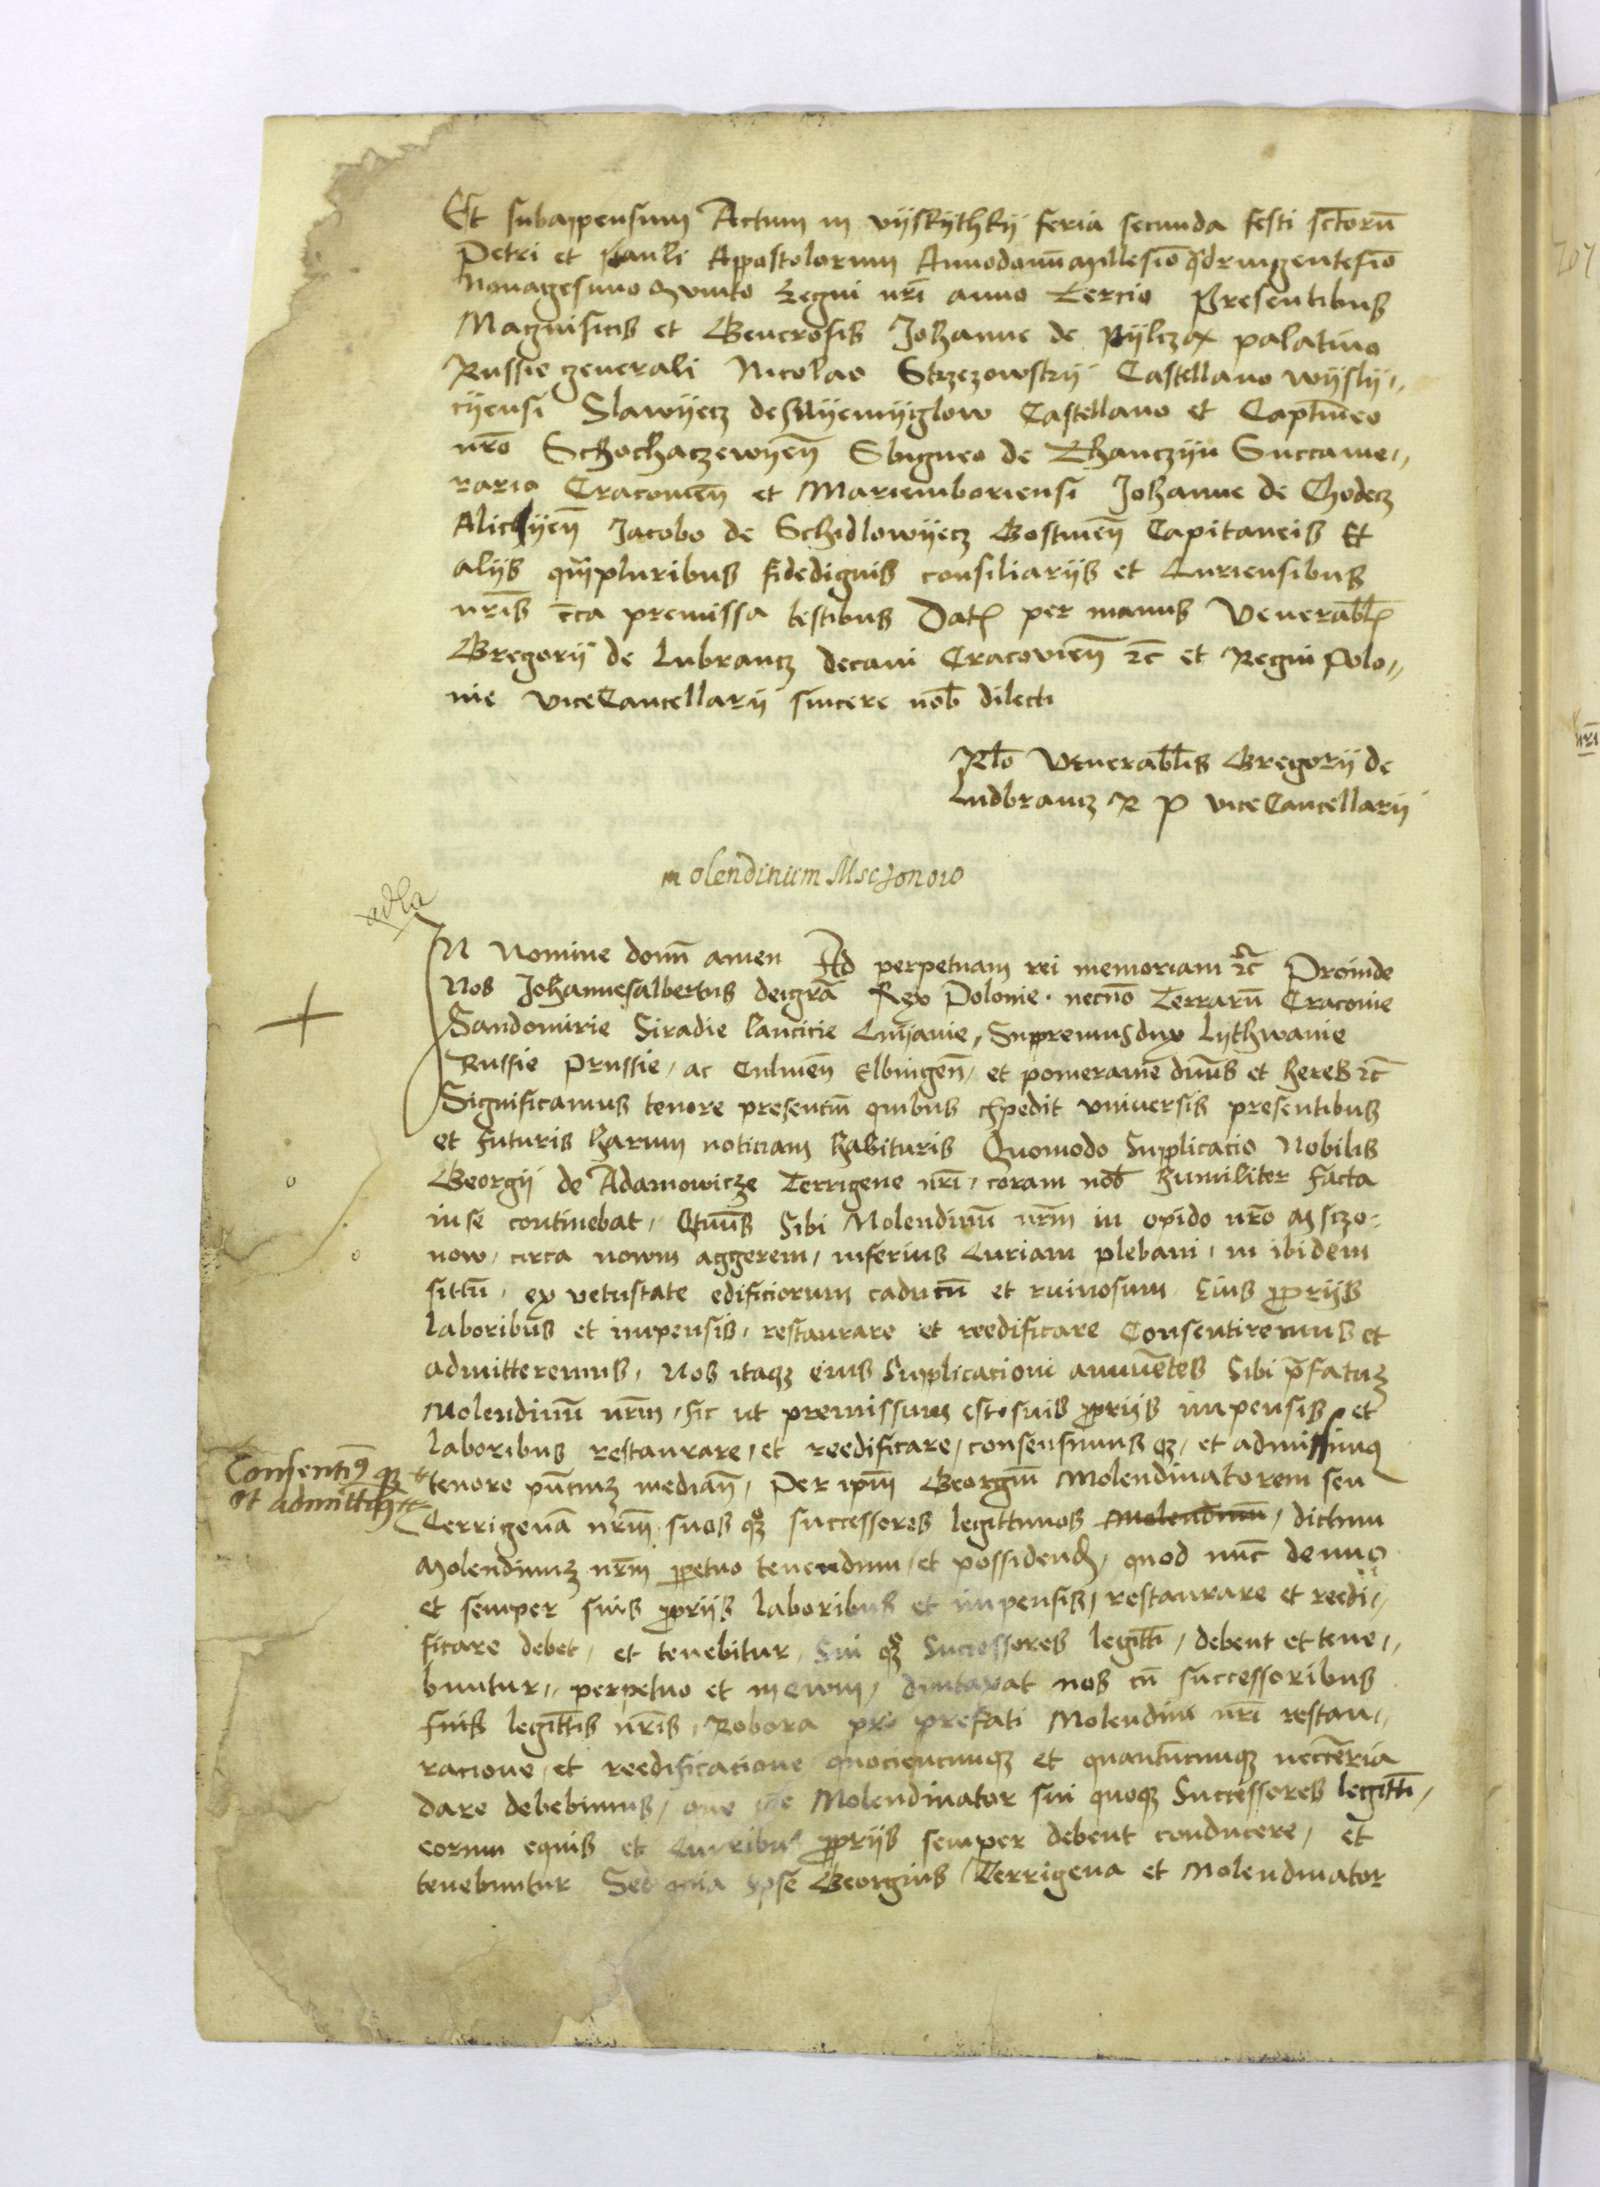 Et subappensum Actum in vyskythky feria secunda festi sctorū
Petri et pauli Appostolorum Annodomīmillesīo qdringentesīo
Nonagesimo Quinto Regni nrī anno Tercio Presentibus
Magnificis et Generosis Johanne de pylcza palatino
Russie generali Nicolao Strzezowsky Castellano wysly„
cyensi Slawyecz de Nyemyglow Castellano et Captīneo
nrō Schochaczewyeñ Sbigneo de Thanczyn Succame„
rario Cracovieñ et Mariemboriensi Johanne de Chodecz
Alicyeñ Jacobo de Schidlowyecz Gostineñ Capitaneis Et
alijs qmpluribus fidedignis consiliarijs et Curiensibus
nrīs cca premissa testibus Dat per manus Venerabl
Gregorij de Lubrancz decani Cracovieñ zc et Regni Polo„
nie ViceCancellarij sincere nob dilecti
Rlo Venerablis Gregorij de
Ludbrancz R P viceCancellarij
molendinum Msczonow
adla
N Nomine domī amen Ad perpetuam rei memoriam zc Proinde
Nos Johannesalbertus deigrā Rex Polonie necnō Terrarū Cracovie
Sandomirie Siradie lancicie Cuyavie, Supremusdux Lythwanie
Russie Prussie, ac Culmeñ Elbingeñ, et pomeranie dnūs et heres zc
Significamus tenore presentiū quibus expedit universis presentibus
et futuris harum noticiam habituris Quomodo Supplicacio Nobilis
Georgij de Adamowicze Terrigene nrī, coram nob humiliter facta
inse continebat, Qtnūs sibi Molendinū nrm in opido nrō Msczo„
now, circa novum aggerem, inferius Curiam plebani, in ibidem
sittū, ex vetustate edificiorum caducū et ruinosum, Eius proprijs
laboribus et impensis, restaurare et reedificare Consentiremus et
admitteremus, Nos itaqz eius Supplicacioni annuētes Sibi pfatuz
Molendinū nrm, sic ut premissum est, suis proprijs impensis, et
laboribus restaurare, et reedificare, consensimus qz, et admissimus
Consentimꝰ qz
et admittimꝰ
tenore pntiuz mediañ, Per ipm Georgiū Molendinatorem seu
Terrigenā nrm, suos qz successores legittimos Molendinū, dictum
Molendinuz nrm ppetuo tenendum, et possidend, quod nūc denuo
et semper suis proprijs laboribus et impensis, restaurare et reedi„
ficare debet, et tenebitur, Sui qz Successores legitti, debent et tene„
buntur, perpetuo et in evum, dumtaxat nos cū successoribus
suis legittīs nrīs, Robora pro prefati Molendini nrī restau„
racione, et reedificacione quociencunqz et quantūcunqz neccēria
dare debebimus, que ipse Molendinator sui quoqz Successores legitti,
eorum equis et Curribus proprijs semper debent conducere, et
tenebuntur Sed quia ipse Georgius Terrigena et Molendinator